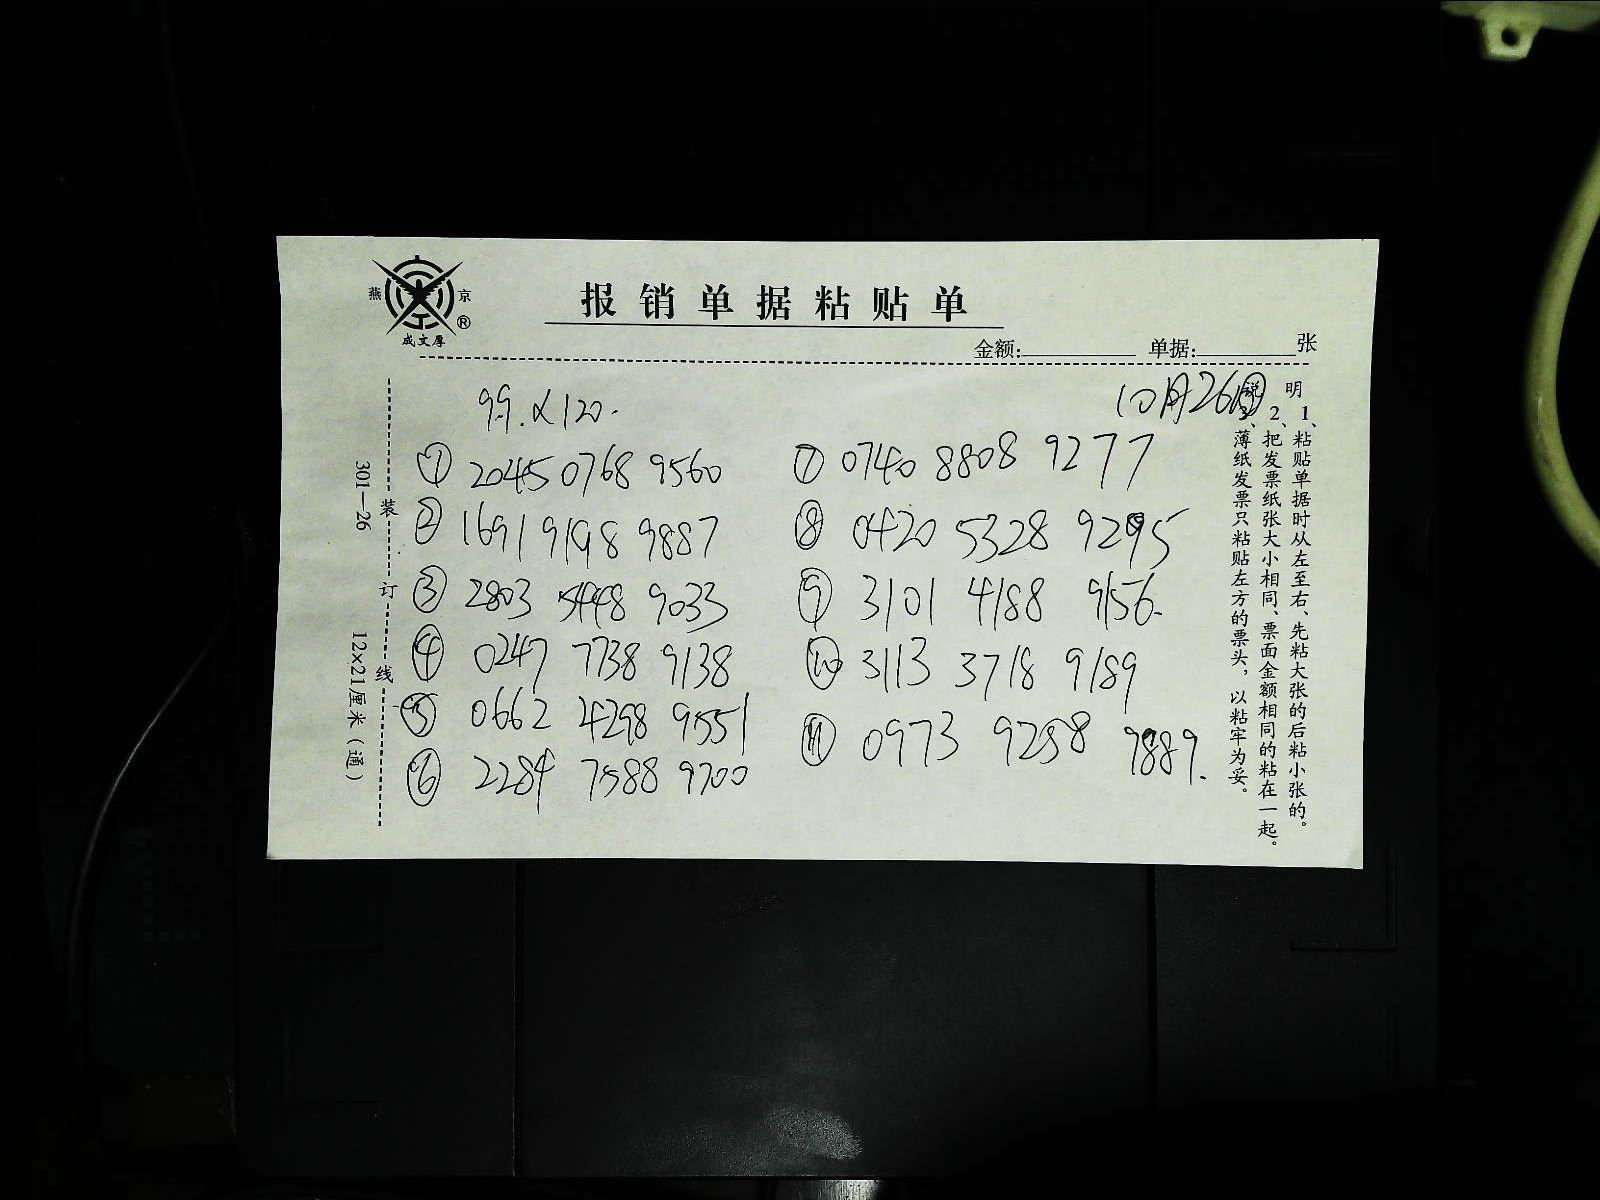 燕 京
®
成文厚
报销单据粘贴单
金额: 单据: 张
10月26日
99.×120.
① 2045 0768 9560
② 1691 9198 9887
③ 2803 5448 9033
④ 0247 7738 9138
⑤ 0662 4298 9551
⑥ 2284 7588 9700
⑦ 0740 8808 9277
⑧ 0420 5328 9295
⑨ 3101 4188 9156.
⑩ 3113 3718 9189
⑪ 0973 9298 9889.
说明
1、粘贴单据时从左至右、先粘大张的后粘小张的。
2、把发票纸张大小相同、票面金额相同的粘在一起。
3、薄纸发票只粘贴左方的票头，以粘牢为妥。
装订线
301—26 12×21厘米（通）